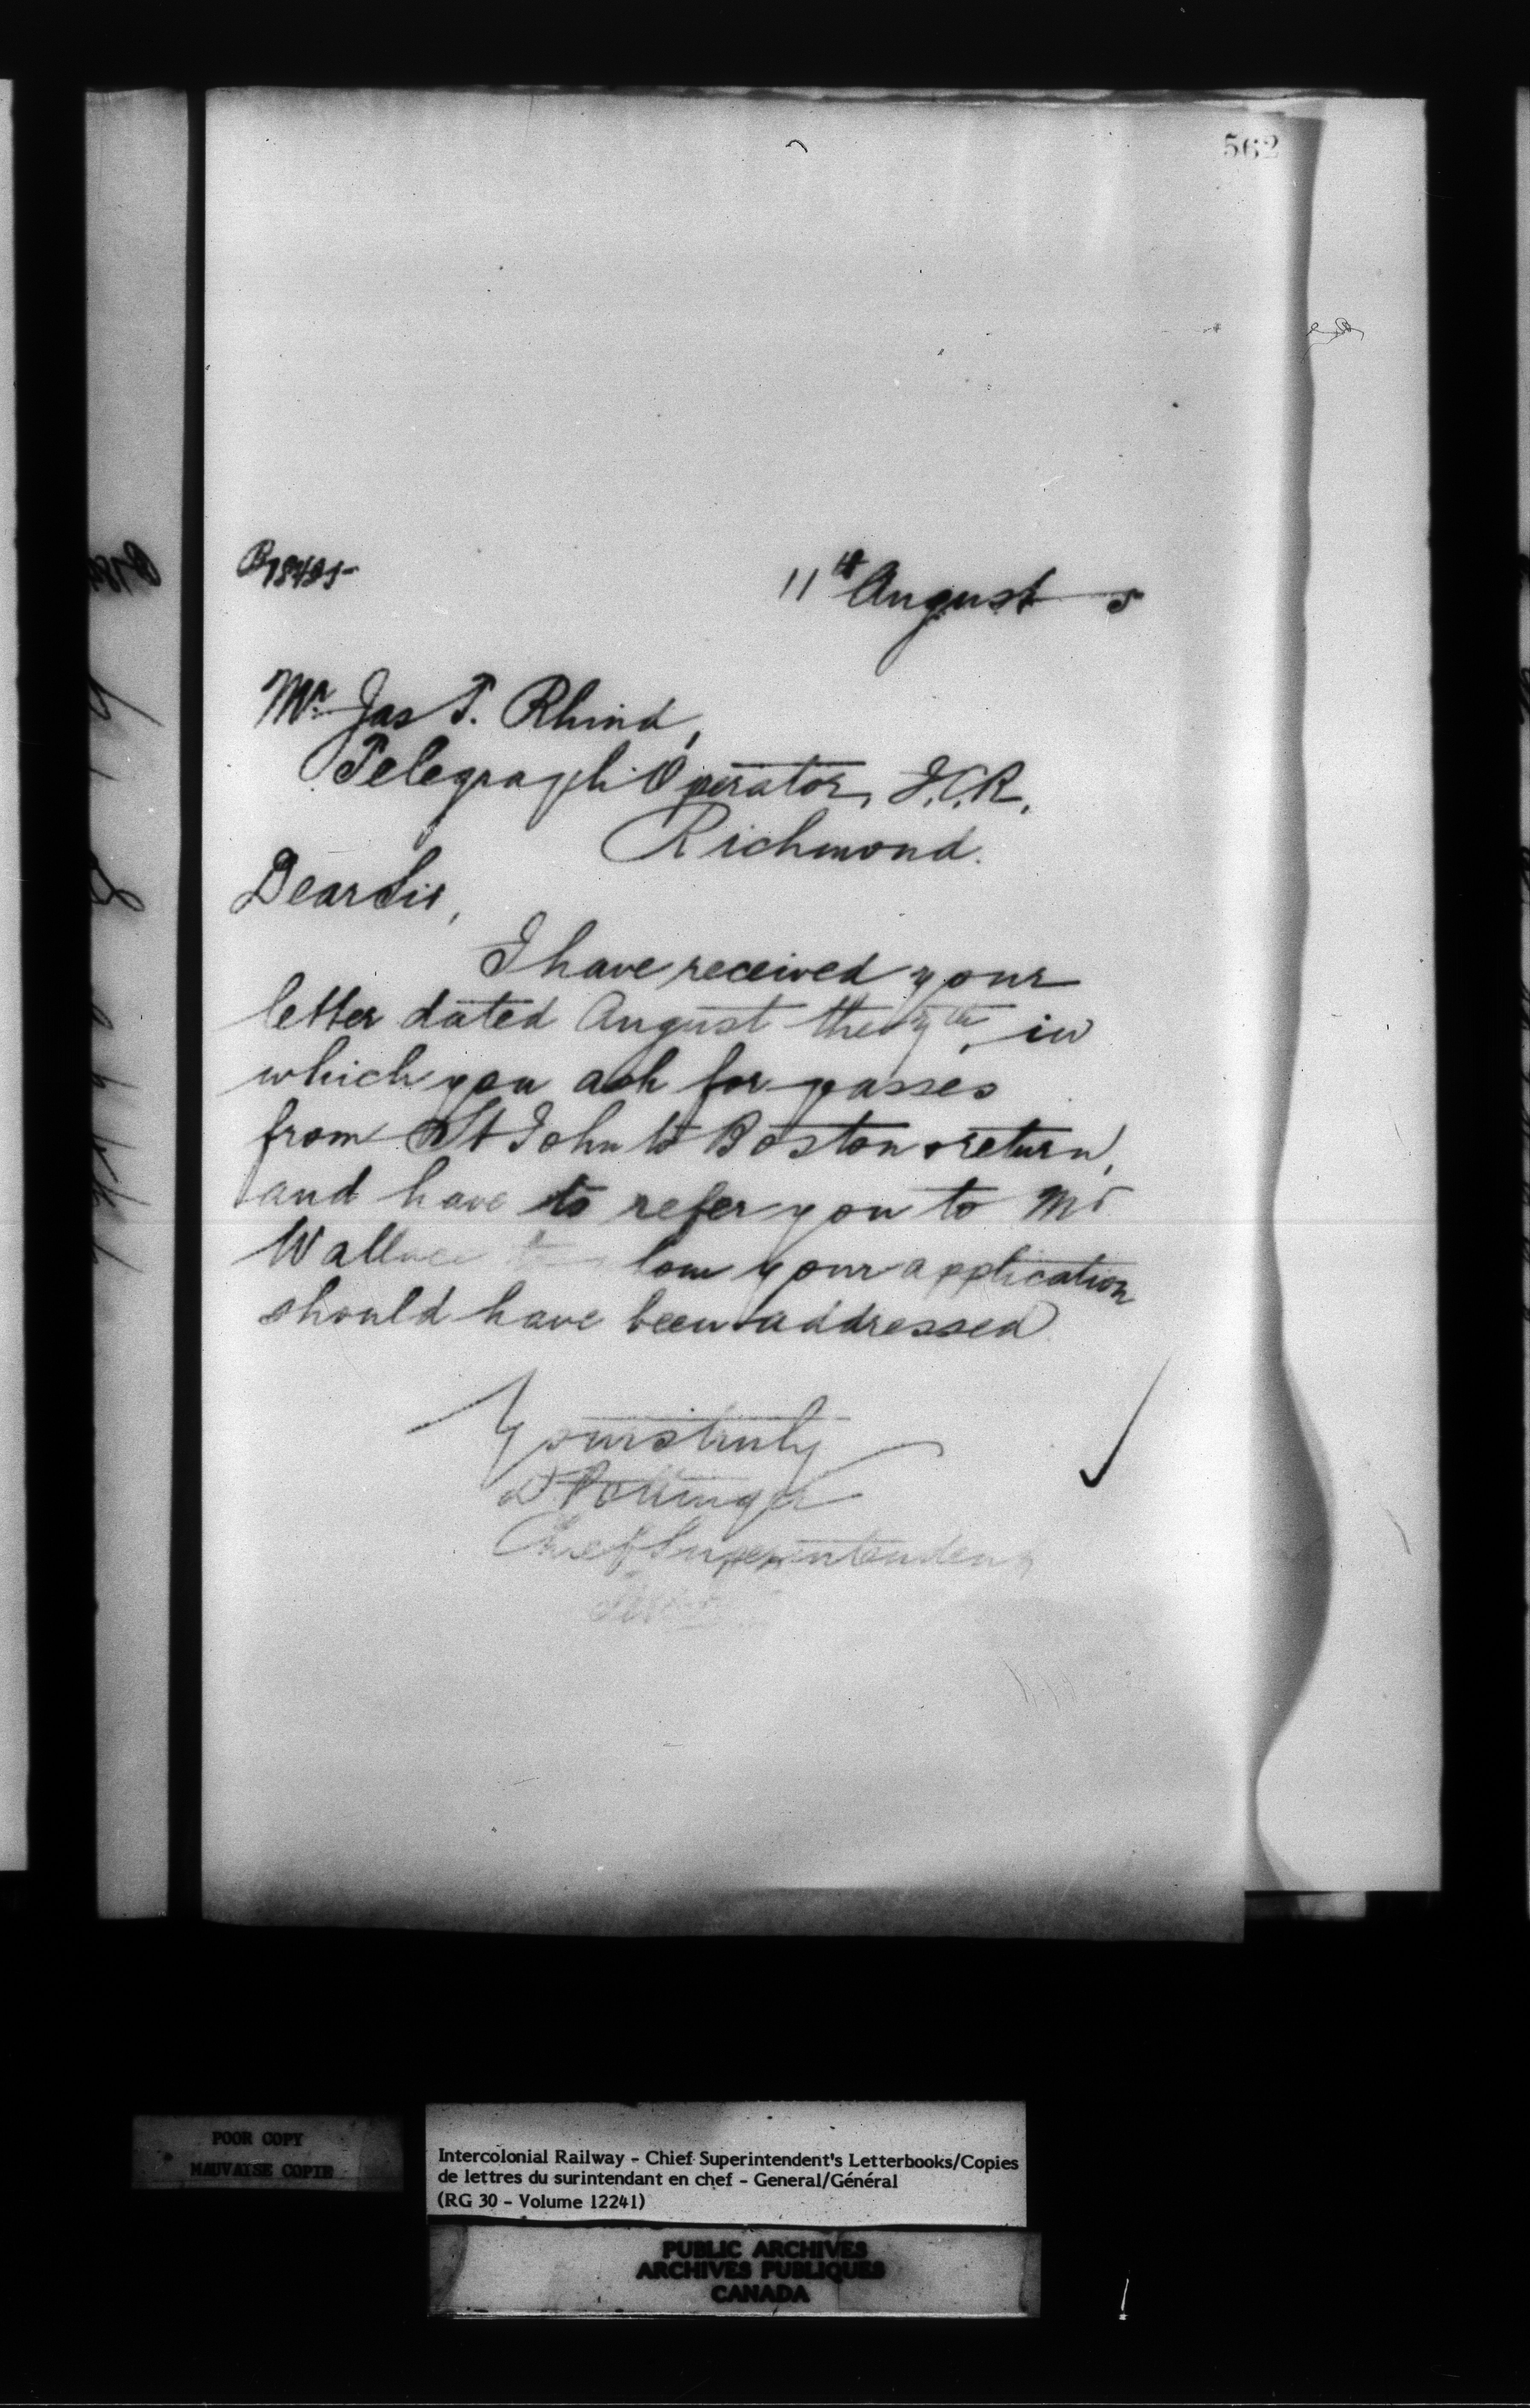 562
11th August 5
Mr. Jas T. Rhind,
Telegraph Operator, I.C.R.,
Richmond.
Dear Sir,
I have received your
letter dated August the in
which you ask for passes
from St John to Boston & return,
and have to refer you to Mr
Wallace your application
should have been addressed.
Yours truly
D Pottinger
Chief Superintendent
POOR COPY
MAUVAISE COPIE
Intercolonial Railway - Chief Superintendent's Letterbooks/Copies
de lettres du surintendant en chef - General/Général
(RG 30 - Volume 12241)
PUBLIC ARCHIVES
ARCHIVES PUBLIQUES
CANADA